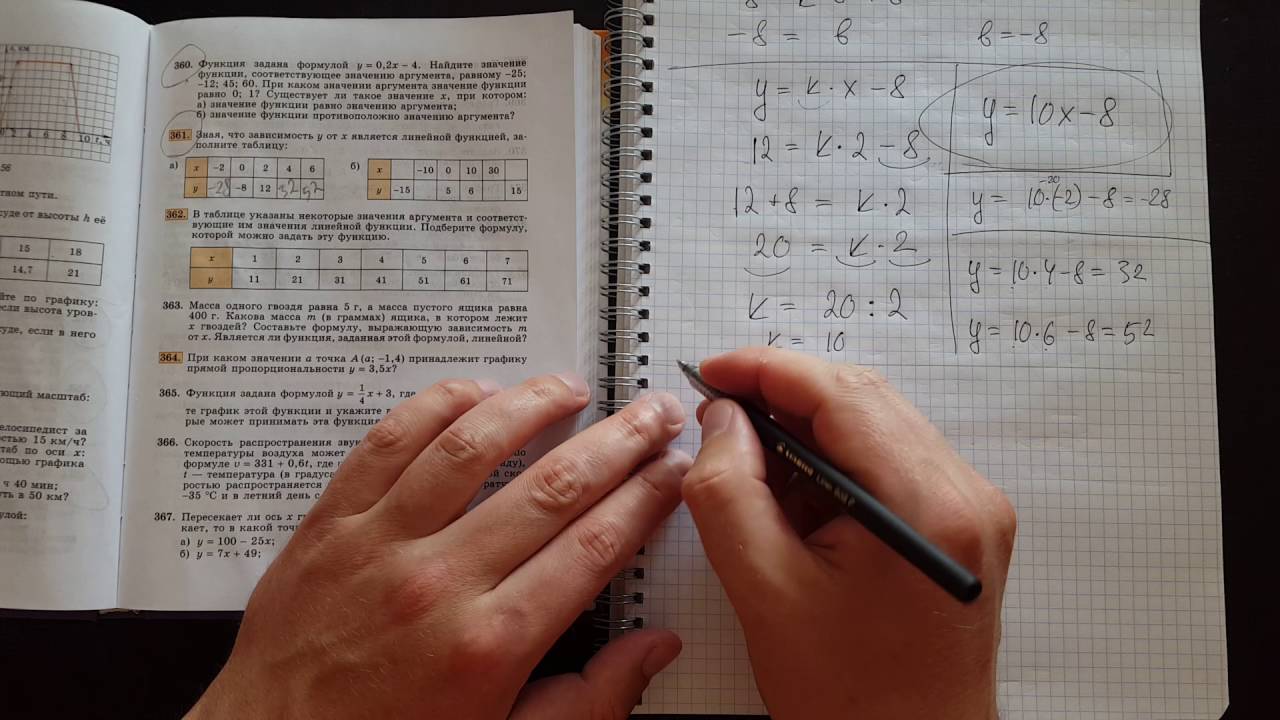 s, км
2 4 6 8 10 t, ч
56
тном пути.
суде от высоты h её
15 18
14,7 21
йте по графику:
если высота уров-
суде, если в него
ующий масштаб:
елосипедист за
остью 15 км/ч?
таб по оси x:
ощью графика
ч 40 мин;
уть в 50 км?
улой:
360. Функция задана формулой y = 0,2x – 4. Найдите значение
функции, соответствующее значению аргумента, равному –25;
–12; 45; 60. При каком значении аргумента значение функции
равно 0; 1? Существует ли такое значение x, при котором:
а) значение функции равно значению аргумента;
б) значение функции противоположно значению аргумента?
361. Зная, что зависимость y от x является линейной функцией, за-
полните таблицу:
а) x –2 0 2 4 6
y -28 –8 12 32 52
б) x –10 0 10 30
y –15 5 6 15
362. В таблице указаны некоторые значения аргумента и соответст-
вующие им значения линейной функции. Подберите формулу,
которой можно задать эту функцию.
x 1 2 3 4 5 6 7
y 11 21 31 41 51 61 71
363. Масса одного гвоздя равна 5 г, а масса пустого ящика равна
400 г. Какова масса m (в граммах) ящика, в котором лежит
x гвоздей? Составьте формулу, выражающую зависимость m
от x. Является ли функция, заданная этой формулой, линейной?
364. При каком значении a точка A (a; –1,4) принадлежит графику
прямой пропорциональности y = 3,5x?
365. Функция задана формулой y = 1/4 x + 3, где
те график этой функции и укажите
рые может принимать эта функция
366. Скорость распространения звук
температуры воздуха может
формуле v = 331 + 0,6t, где
t — температура (в градуса
ростью распространяется
–35 °С и в летний день с
367. Пересекает ли ось x
кает, то в какой точ
а) y = 100 – 25x;
б) y = 7x + 49;
-8 = в в = -8
y = k · x - 8
12 = k · 2 - 8
12 + 8 = k · 2
20 = k · 2
k = 20 : 2
k = 10
y = 10x - 8
-20
y = 10·(-2) - 8 = -28
y = 10·4 - 8 = 32
y = 10·6 - 8 = 52